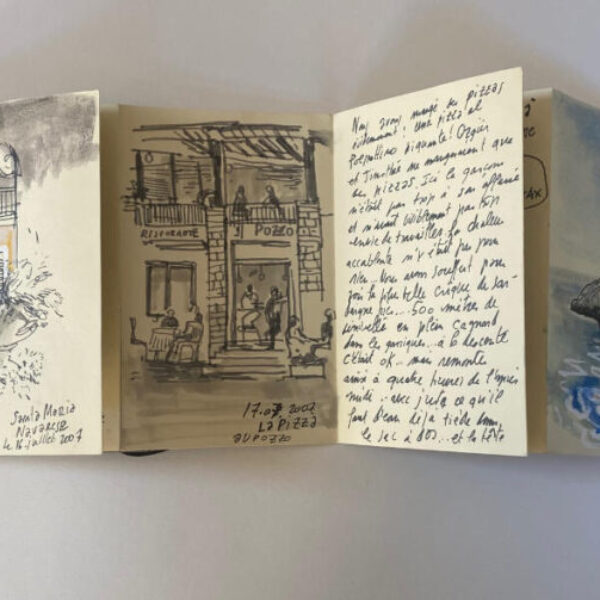 Santa Maria
Navarese
le 16 juillet 2007
RISTORANTE
IL POZZO
17.07 2007
LA PIZZA
AU POZZO
Nous avons mangé des pizzas
évidemment! Une pizza al
peperoncino piquante!
et Timothé me manquaient que
des pizzas. Ici le garçon
n'était pas trop à son affaire
et n'avait visiblement pas trop
envie de travailler. La chaleur
accablante n'y était pas pour
rien. Nous avons souffert pour
voir la plus belle crique de Sar-
daigne 500 mètres de
dénivelés en plein cagnard
dans les garrigues... à la descente
c'était ok.. mais remonter
ainsi à quatre heures de l'après
midi.. avec juste ce qu'il
faut d'eau déjà tiède dans
le sac à dos.. et la tête